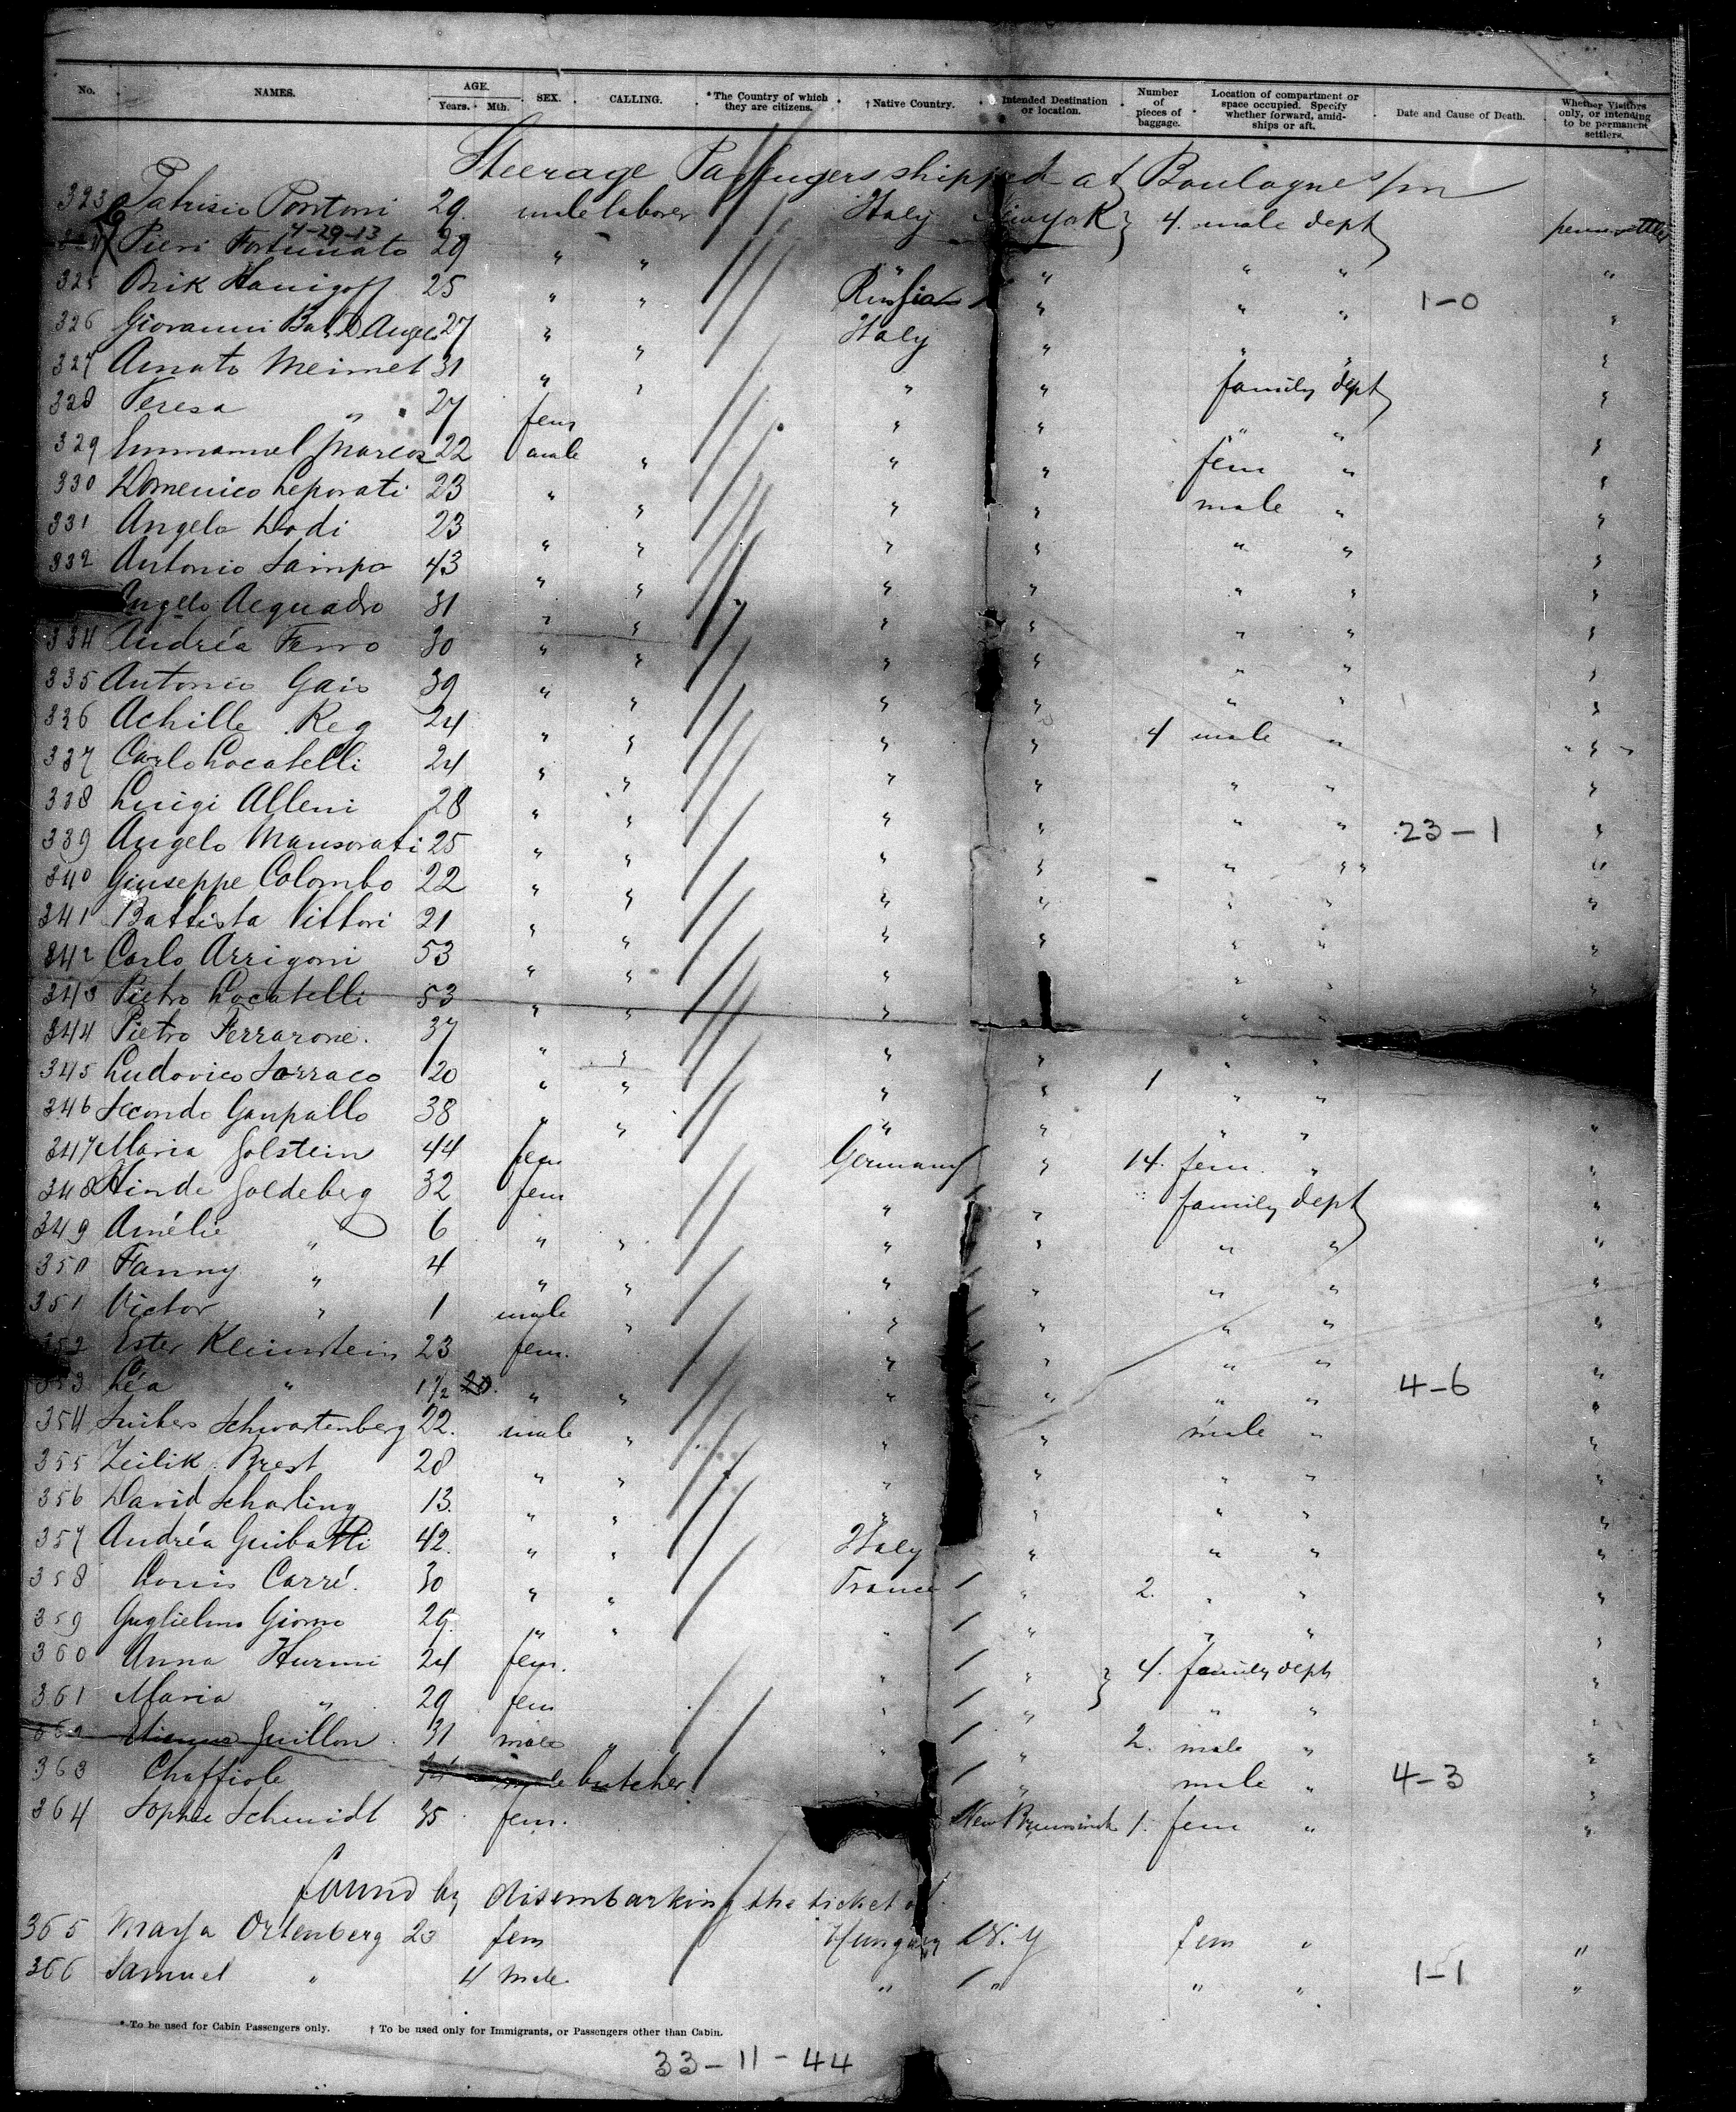 No. NAMES. AGE. Years. Mth. SEX. CALLING. *The Country of which they are citizens. †Native Country. Intended Destination or location. Number of pieces of baggage. Location of compartment or space occupied. Specify whether forward, amidships or aft. Date and Cause of Death. Whether Visitors only, or intending to be permanent settlers.
Steerage Passengers shipped at Boulogne s/m
323 Patrisio Pontoni 29. male laborer Italy New York 4. male dept
4-29-13
Pieri Fortunato 29 " " " " " " "
325 Hanigoff 25 " " Russia " " " 1-0 "
326 Giovanni Bat. D. Angelo 27 " " Italy " " "
327 Amato Meimet 31 " " " " family dept "
328 Teresa " 27 fem " " " " "
329 Emmanuel Marcoz 22 male " " " fem " "
330 Domenico Leporati 23 " " " " male " "
331 Angelo Dodi 23 " " " " " " "
332 Antonio Sampo 43 " " " " " " "
Angelo Acquadro 31 " " " " " " "
334 Andréa Ferro 30 " " " " " " "
335 Antonio Gaio 39 " " " " " " "
336 Achille Reg 24 " " " " 4 male " "
337 Carlo Locatelli 24 " " " " " " "
338 Luigi Alleni 28 " " " " " " 23-1 "
339 Angelo Mansorati 25 " " " " " " "
340 Giuseppe Colombo 22 " " " " " " "
341 Battista Vittori 21 " " " " " " "
342 Carlo Arrigoni 53 " " " " "
343 Pietro Locatelli 53 " " " " "
344 Pietro Ferrarone. 37 " " " " " "
345 Ludovico Sarraco 20 " " " " 1 " "
346 Secondo Ganpallo 38 " " " " " " "
347 Maria Golstein 44 fem Germany " 14. fem. " "
348 Hinde Goldeberg 32 fem " " family dept "
349 Amélie " 6 " " " " " " "
350 Fanny " 4 " " " " " " "
351 Victor " 1 male " " " " " "
352 Ester Kleinstein 23 fem. " " " " "
353 Léa " 1 1/2 " " " " " " 4-6 "
354 Schwartenberg 22. male " " " male " "
355 Zeilik Brest 28 " " " " " " "
356 David Scharling 13. " " " " " " "
357 Andréa Guibatti 42. " " Italy " " " "
358 Louis Carré. 30 " " France " 2. " " "
359 Guglielmo Giorno 29. " " " " " " "
360 Anna Hurmi 24 fem. " " 4. family dept "
361 Maria " 29 fem " " " " "
362 Etienne Guillon 31 male " " " 2. male " "
363 Chaffiole male butcher " " male " 4-3 "
364 Sophie Schmidt 35 fem. New Brunswick 1. fem " "
found by disembarking the ticket
365 Ortenberg 23 fem Hungary N. Y fem " "
366 Samuel " 4 male " " " " 1-1 "
* To be used for Cabin Passengers only. † To be used only for Immigrants, or Passengers other than Cabin.
33-11-44